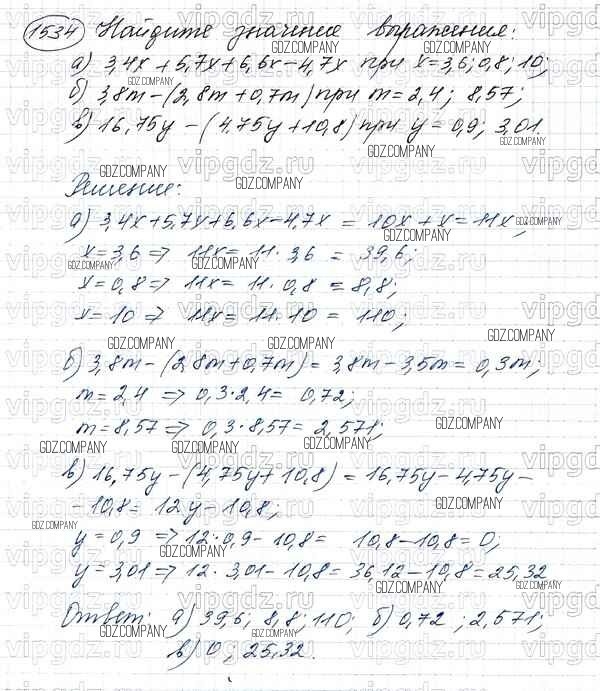 1534 Найдите значение выражения:
а) 3,4x + 5,7x + 6,6x − 4,7x при x = 3,6; 0,8; 10;
б) 3,8m − (2,8m + 0,7m) при m = 2,4; 8,57;
в) 16,75y − (4,75y + 10,8) при y = 0,9; 3,01.
Решение:
а) 3,4x + 5,7x + 6,6x − 4,7x = 10x + x = 11x;
x = 3,6 => 11x = 11 · 3,6 = 39,6;
x = 0,8 => 11x = 11 · 0,8 = 8,8;
x = 10 => 11x = 11 · 10 = 110;
б) 3,8m − (2,8m + 0,7m) = 3,8m − 3,5m = 0,3m;
m = 2,4 => 0,3 · 2,4 = 0,72;
m = 8,57 => 0,3 · 8,57 = 2,571;
в) 16,75y − (4,75y + 10,8) = 16,75y − 4,75y −
− 10,8 = 12y − 10,8;
y = 0,9 => 12 · 0,9 − 10,8 = 10,8 − 10,8 = 0;
y = 3,01 => 12 · 3,01 − 10,8 = 36,12 − 10,8 = 25,32
Ответ: а) 39,6; 8,8; 110; б) 0,72; 2,571;
в) 0; 25,32.
GDZ.COMPANY
vipgdz.ru